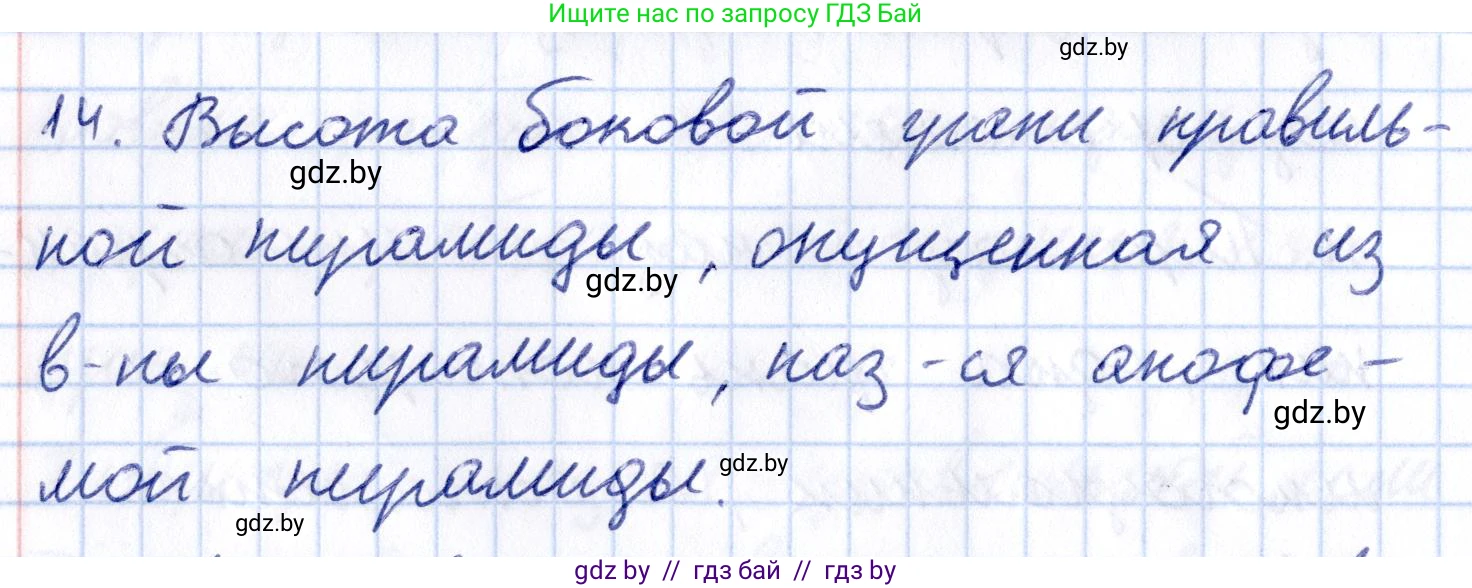 Ищите нас по запросу ГДЗ Бай
gdz.by
14. Высота боковой грани правиль-
gdz.by
ной пирамиды, опущенная из
gdz.by
в-ны пирамиды, наз-ся апофе-
gdz.by
мой пирамиды.
gdz.by
gdz.by
gdz by // гдз бай // гдз by